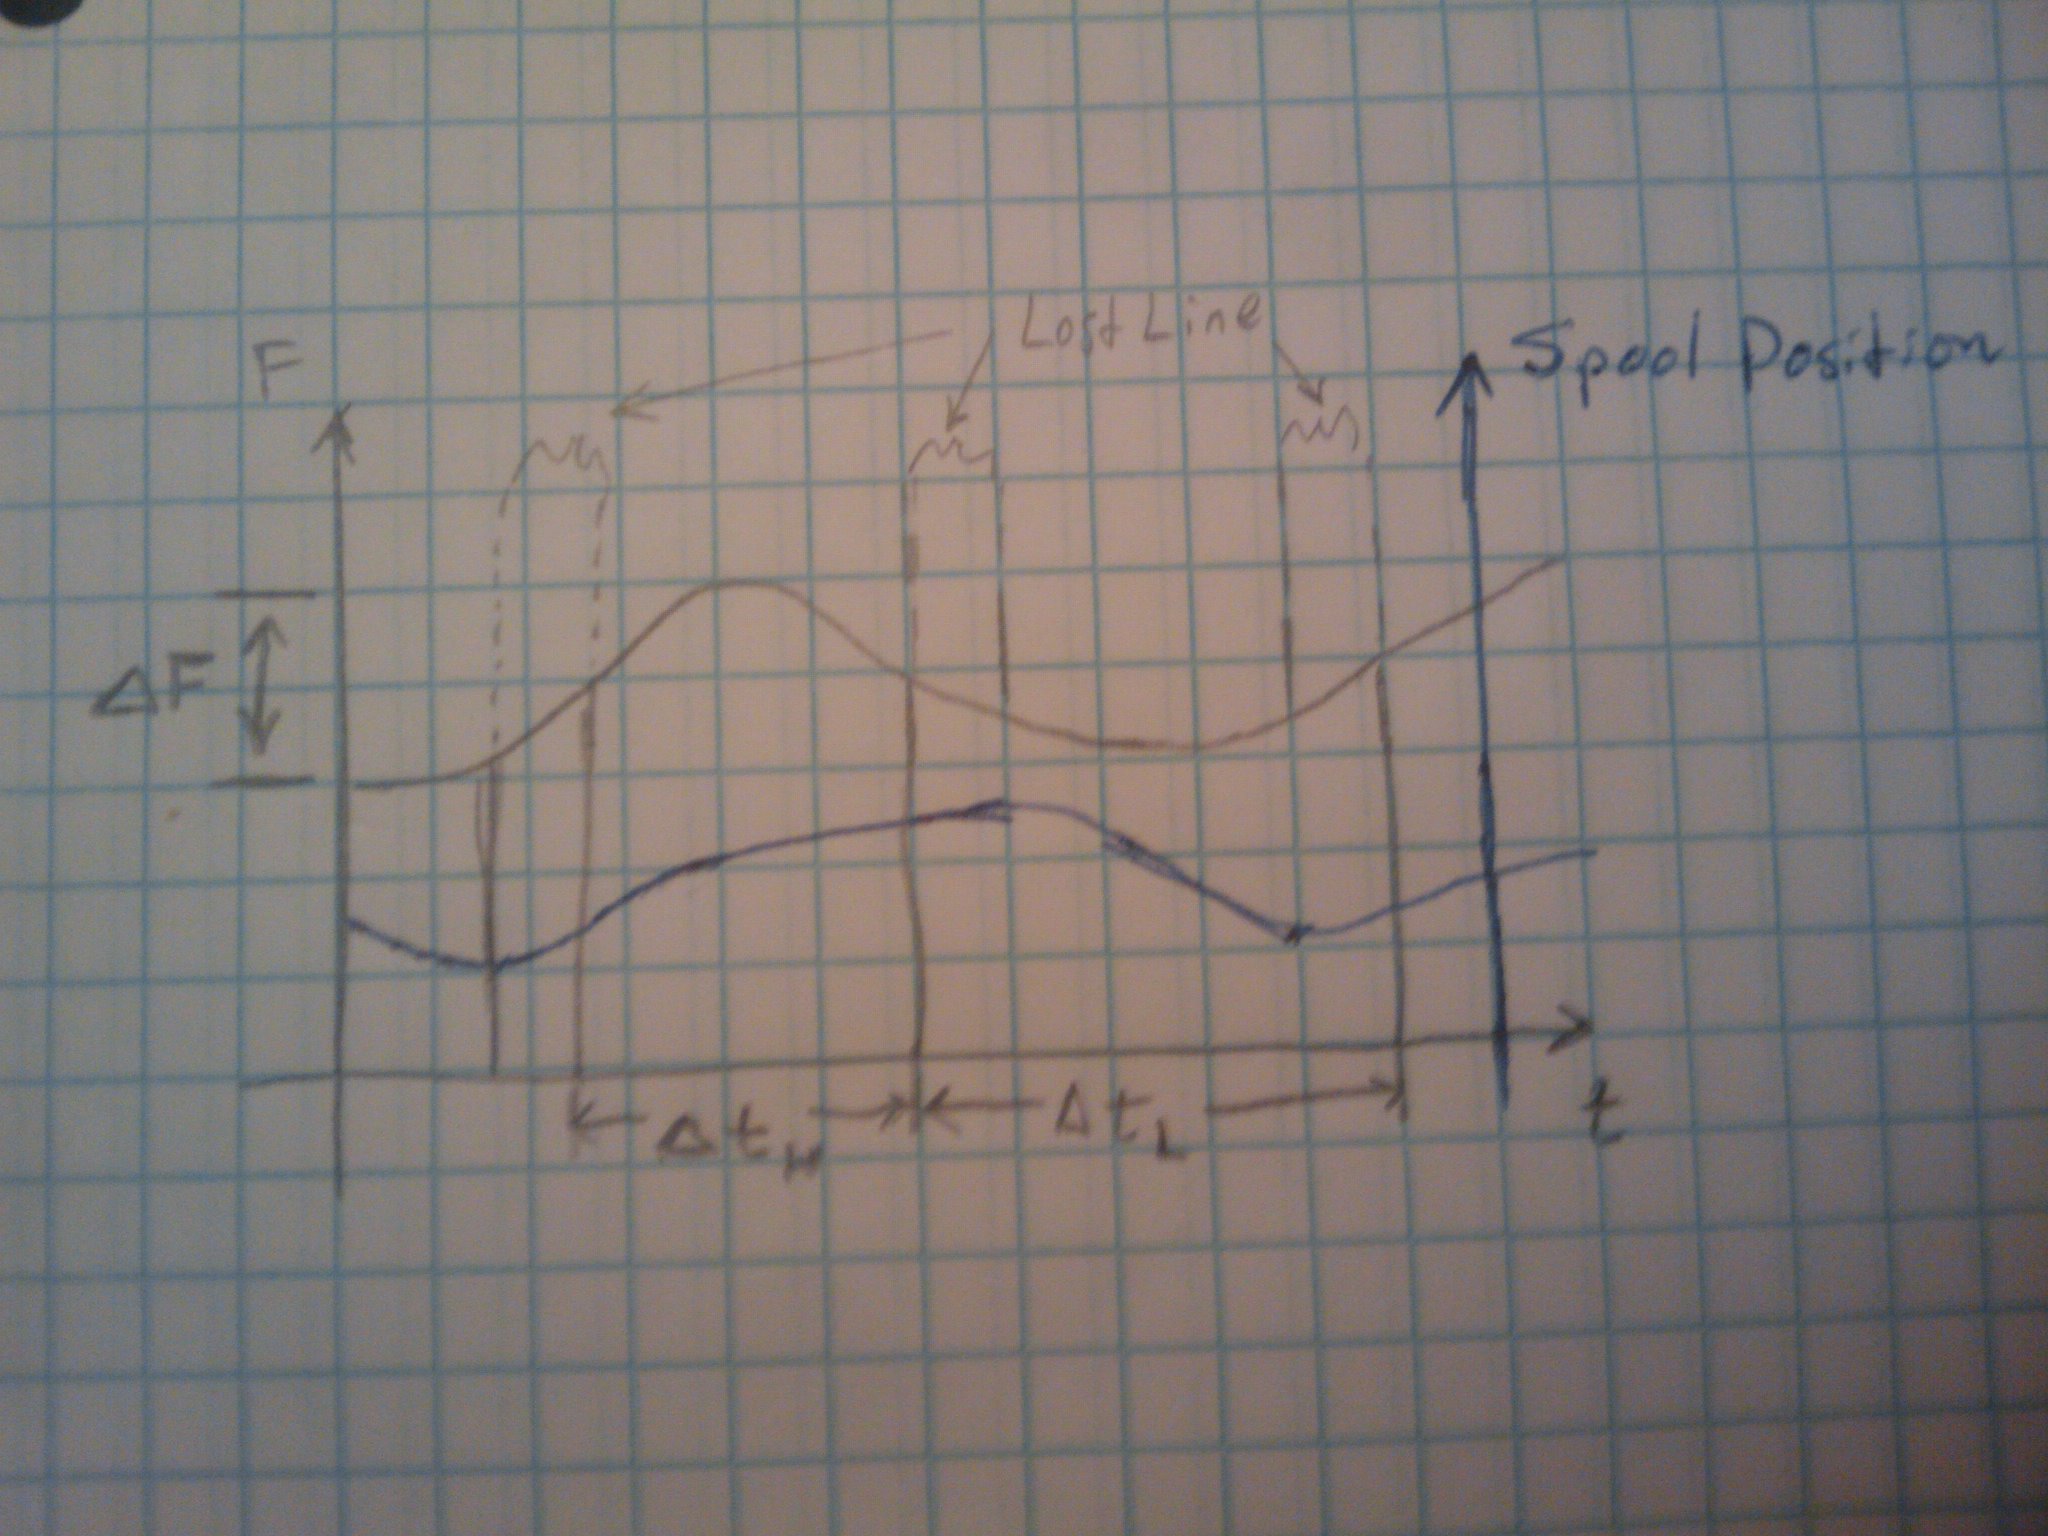 Lost Line
F
Spool Position
ΔF
Δt_H
Δt_L
t